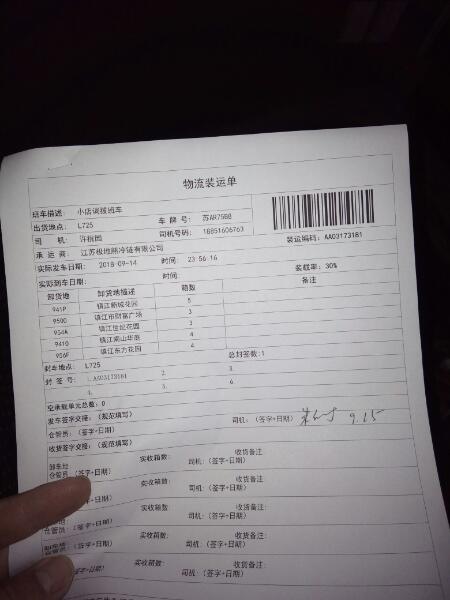 物流装运单
班车描述: 小店调拨班车
出货地点: L725 车 牌 号: 苏AR75B8
司 机: 许祝圆 司机号码: 18851606763
承 运 商: 江苏极地熊冷链有限公司 装运编码: AA03173181
实际发车日期: 2018-09-14 时间: 23:56:16
实际到车日期: 时间: 装载率: 30%
卸货地 卸货地描述 箱数 备注
941P 镇江新城花园 5
950D 镇江市财富广场 3
954A 镇江世纪花园 3
941Q 镇江南山华庭 4
956F 镇江东方花园 4
封车地点: L725 总封签数:1
封 签 号: 1.AA03173181 2. 3.
4. 5. 6.
空承载单元总数: 0
发车签字交接:(规范填写)
仓管员:(签字+日期) 司机:(签字+日期) 9.15
收货签字交接:(规范填写)
卸车地 实收箱数: 收货备注
仓管员:(签字+日期) 司机:(签字+日期)
实收箱数: 收货备注:
(签字+日期) 司机:(签字+日期)
实收箱数: 收货备注:
仓管员:(签字+日期) 司机:(签字+日期)
实收箱数: 收货备注:
(签字+日期) 司机:(签字+日期)
实收箱数: 收货备注:
(签字+日期) 司机:(签字+日期)